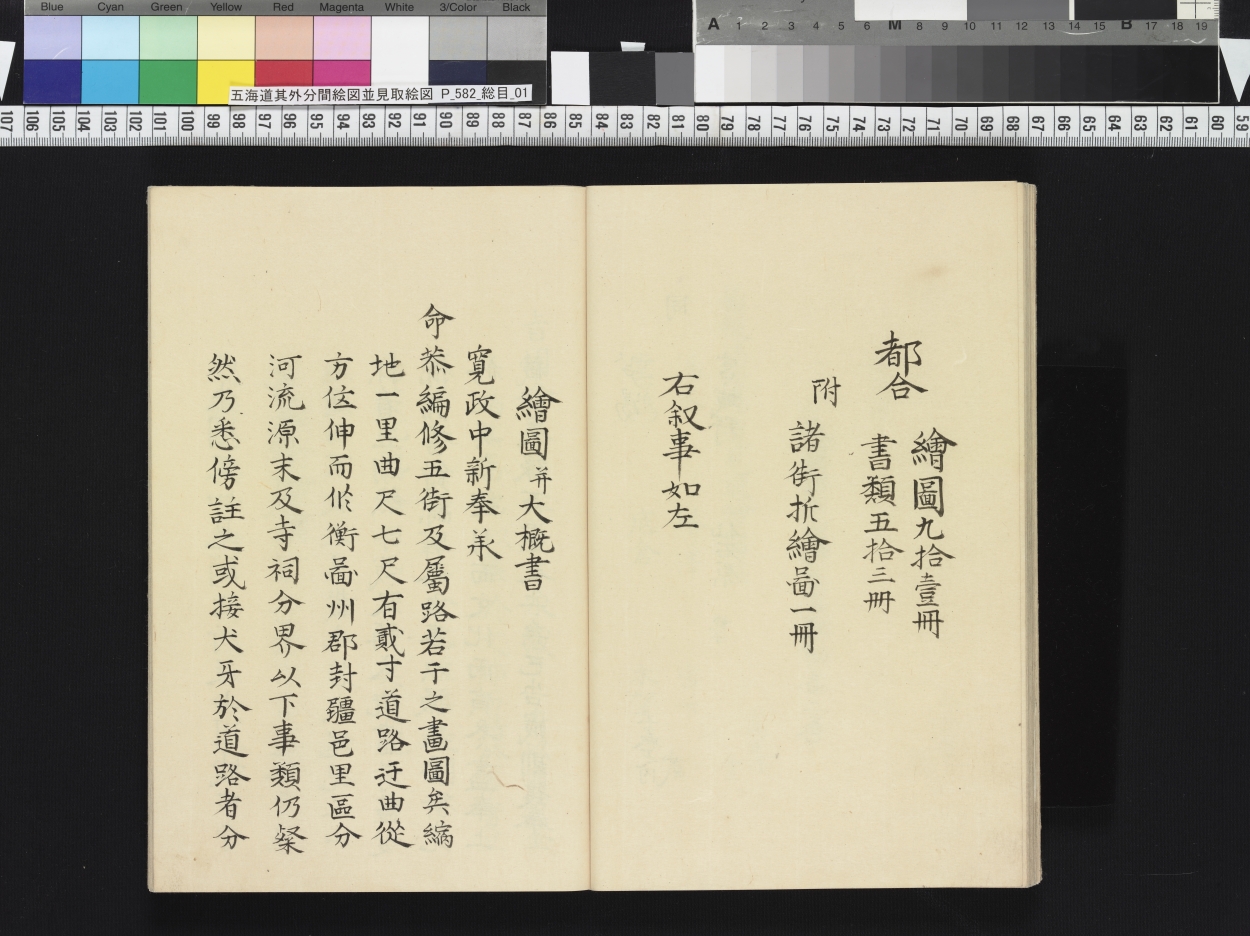 Blue Cyan Green Yellow Red Magenta White 3/Color Black
A 1 2 3 4 5 6 M 8 9 10 11 12 13 14 15 B 17 18 19
五海道其外分間絵図並見取絵図 P_582_総目_01
107 106 105 104 103 102 101 100 99 98 97 96 95 94 93 92 91 90 89 88 87 86 85 84 83 82 81 80 79 78 77 76 75 74 73 72 71 70 69 68 67 66 65 64 63 62 61 60 59
都合
繪圖九拾壹冊
書類五拾三冊
附
諸街折繪啚一冊
右叙事如左
繪圖并大概書
寛政中新奉羕
命恭編修五街及屬路若干之畫圖矣縮
地一里曲尺七尺有貳寸道路迂曲從
方位伸而作衡啚州郡封疆邑里區分
河流源末及寺祠分界以下事類仍粲
然乃悉傍註之或接犬牙於道路者分